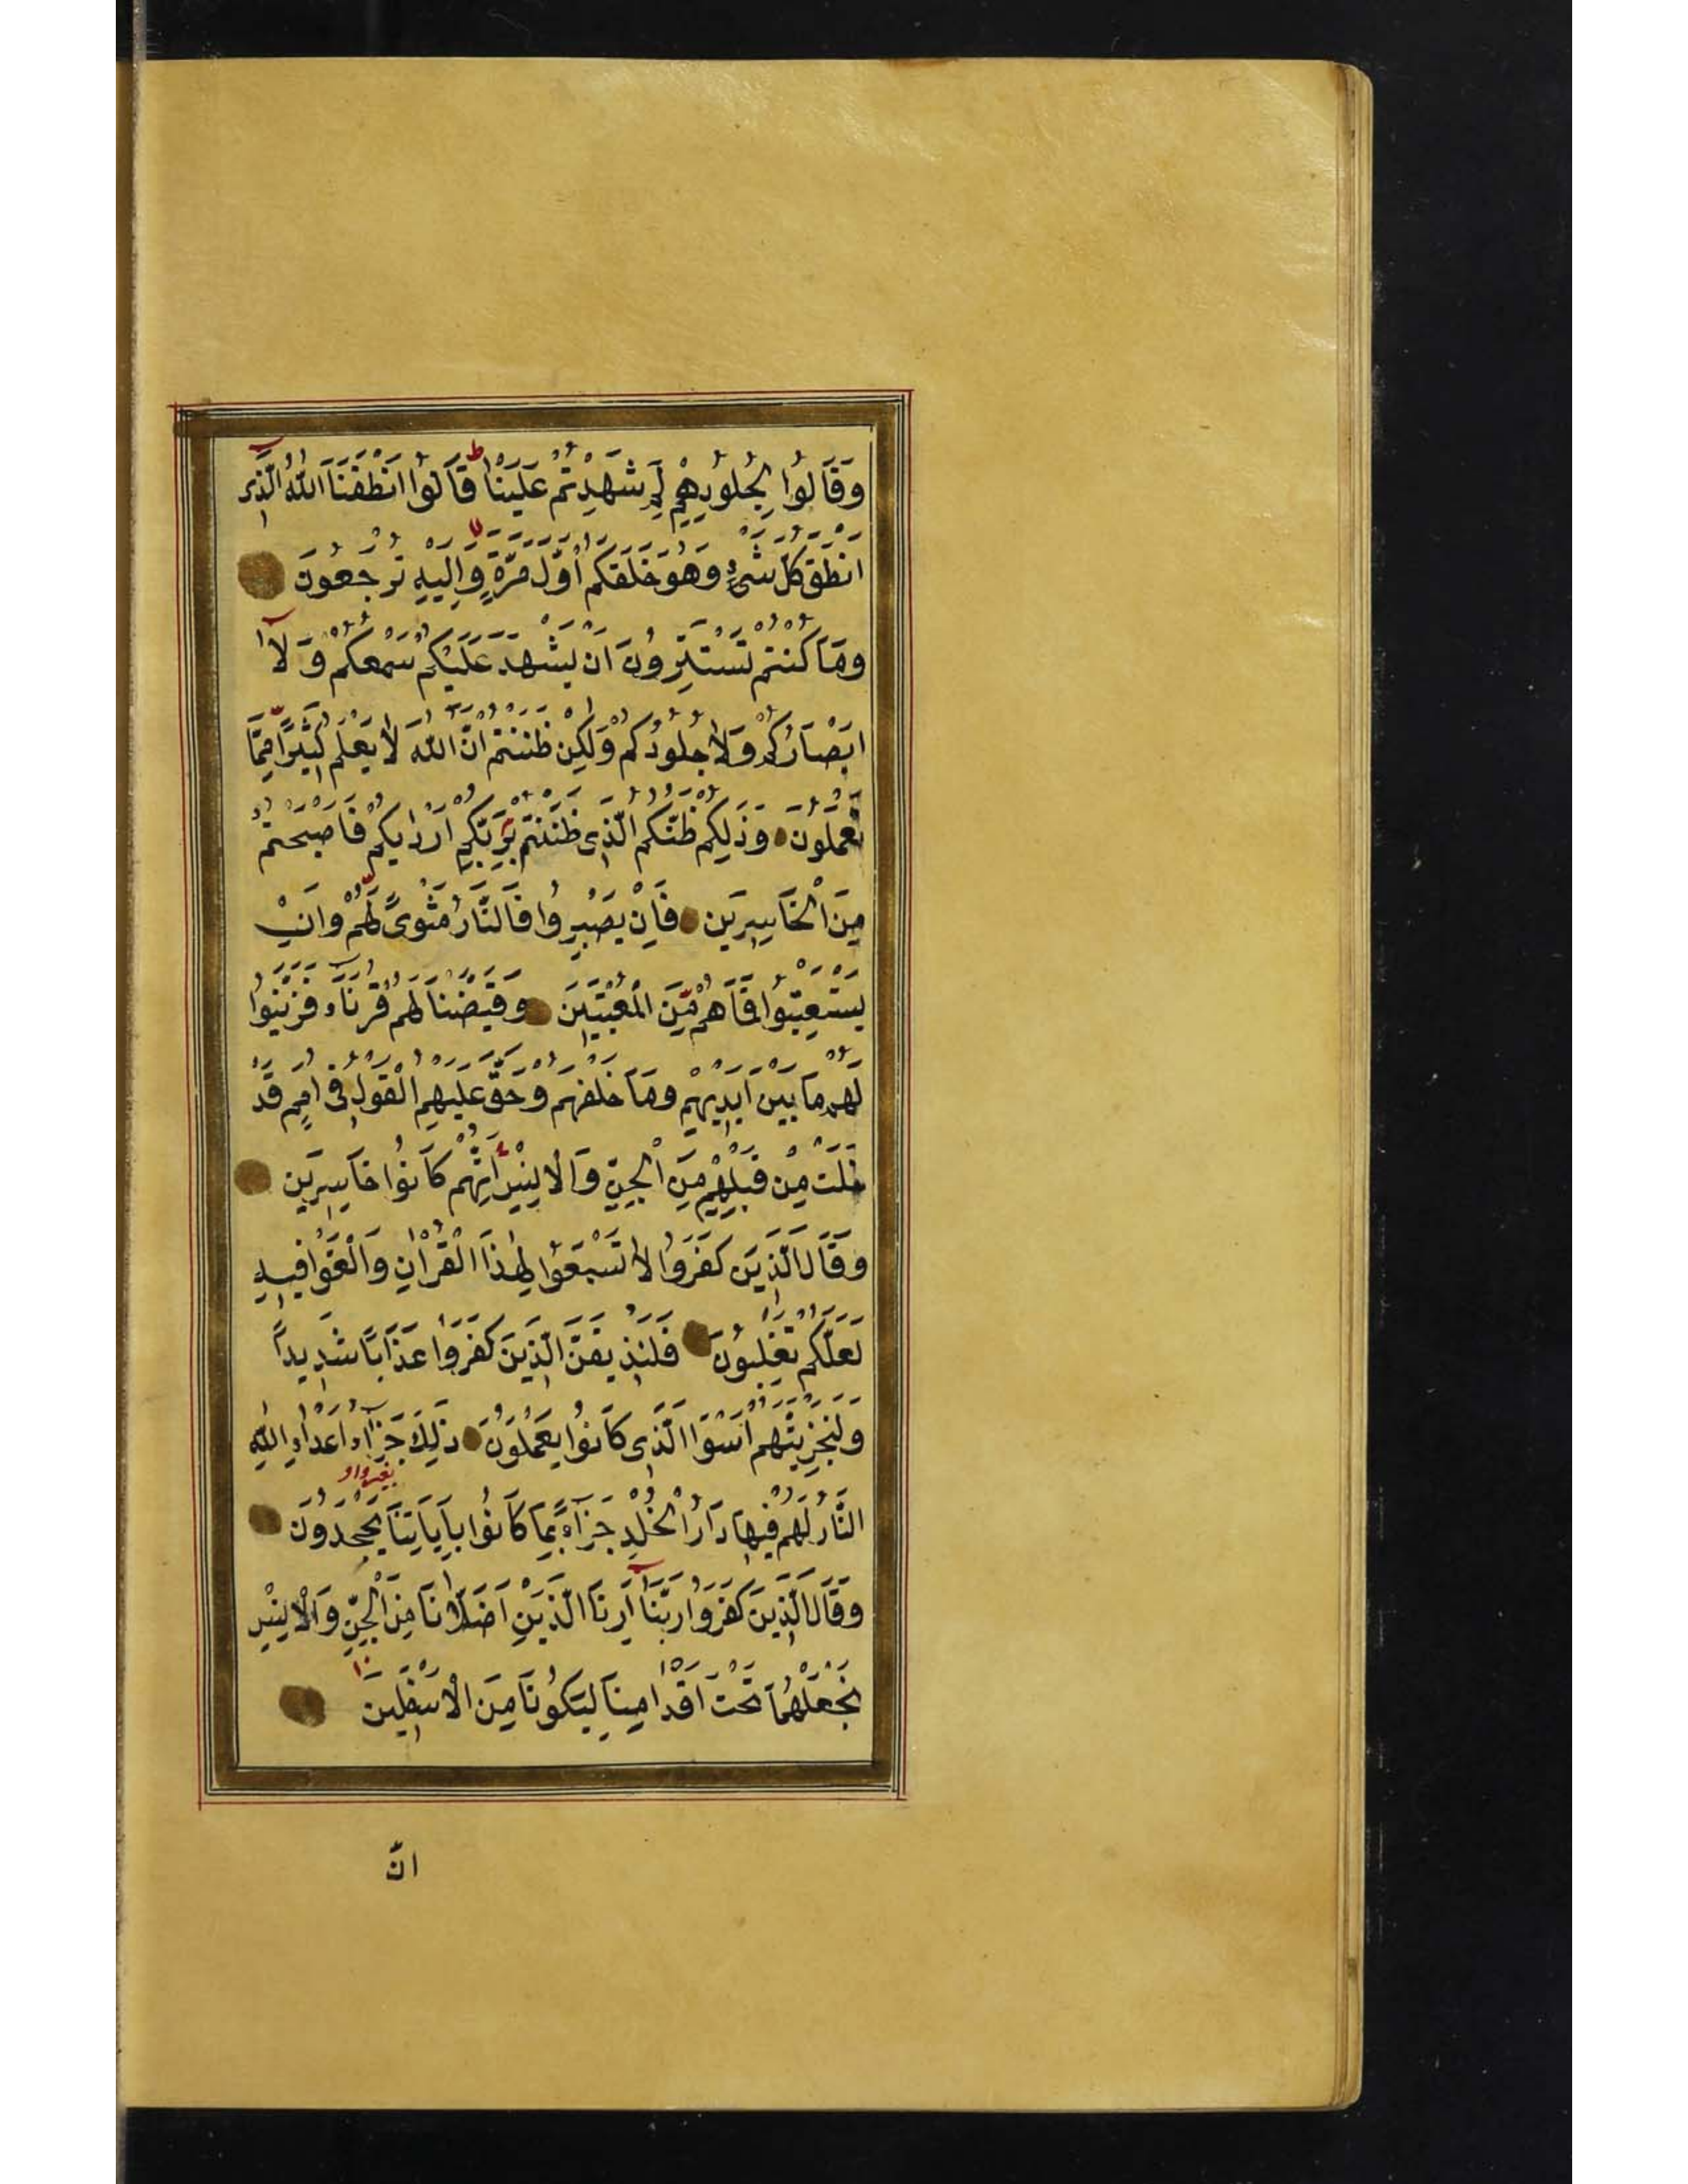 وَقَالُوا لِجُلُودِهِمْ لِمَ شَهِدْتُمْ عَلَيْنَا ط قَالُوا اَنْطَقَنَا اللّٰهُ الَّذِى
اَنْطَقَ كُلَّ شَىْءٍ وَهُوَ خَلَقَكُمْ اَوَّلَ مَرَّةٍ لا وَاِلَيْهِ تُرْجَعُونَ
وَمَا كُنْتُمْ تَسْتَتِرُونَ اَنْ يَشْهَدَ عَلَيْكُمْ سَمْعُكُمْ وَلَآ
اَبْصَارُكُمْ وَلَا جُلُودُكُمْ وَلٰكِنْ ظَنَنْتُمْ اَنَّ اللّٰهَ لَا يَعْلَمُ كَثِيرًا مِمَّا
تَعْمَلُونَ وَذٰلِكُمْ ظَنُّكُمُ الَّذِى ظَنَنْتُمْ بِرَبِّكُمْ اَرْدٰيكُمْ فَاَصْبَحْتُمْ
مِنَ الْخَاسِرِينَ فَاِنْ يَصْبِرُوا فَالنَّارُ مَثْوًى لَهُمْ وَاِنْ
يَسْتَعْتِبُوا فَمَا هُمْ مِنَ الْمُعْتَبِينَ وَقَيَّضْنَا لَهُمْ قُرَنَآءَ فَزَيَّنُوا
لَهُمْ مَا بَيْنَ اَيْدِيهِمْ وَمَا خَلْفَهُمْ وَحَقَّ عَلَيْهِمُ الْقَوْلُ فِى اُمَمٍ قَدْ
خَلَتْ مِنْ قَبْلِهِمْ مِنَ الْجِنِّ وَالْاِنْسِ اِنَّهُمْ كَانُوا خَاسِرِينَ
وَقَالَ الَّذِينَ كَفَرُوا لَا تَسْمَعُوا لِهٰذَا الْقُرْاٰنِ وَالْغَوْا فِيهِ
لَعَلَّكُمْ تَغْلِبُونَ فَلَنُذِيقَنَّ الَّذِينَ كَفَرُوا عَذَابًا شَدِيدًا
وَلَنَجْزِيَنَّهُمْ اَسْوَاَ الَّذِى كَانُوا يَعْمَلُونَ ذٰلِكَ جَزَآءُ اَعْدَاءِ اللّٰهِ
بغير واو
النَّارُ لَهُمْ فِيهَا دَارُ الْخُلْدِ جَزَآءً بِمَا كَانُوا بِاٰيَاتِنَا يَجْحَدُونَ
وَقَالَ الَّذِينَ كَفَرُوا رَبَّنَآ اَرِنَا الَّذَيْنِ اَضَلَّانَا مِنَ الْجِنِّ وَالْاِنْسِ
نَجْعَلْهُمَا تَحْتَ اَقْدَامِنَا لِيَكُونَا مِنَ الْاَسْفَلِينَ
انّ